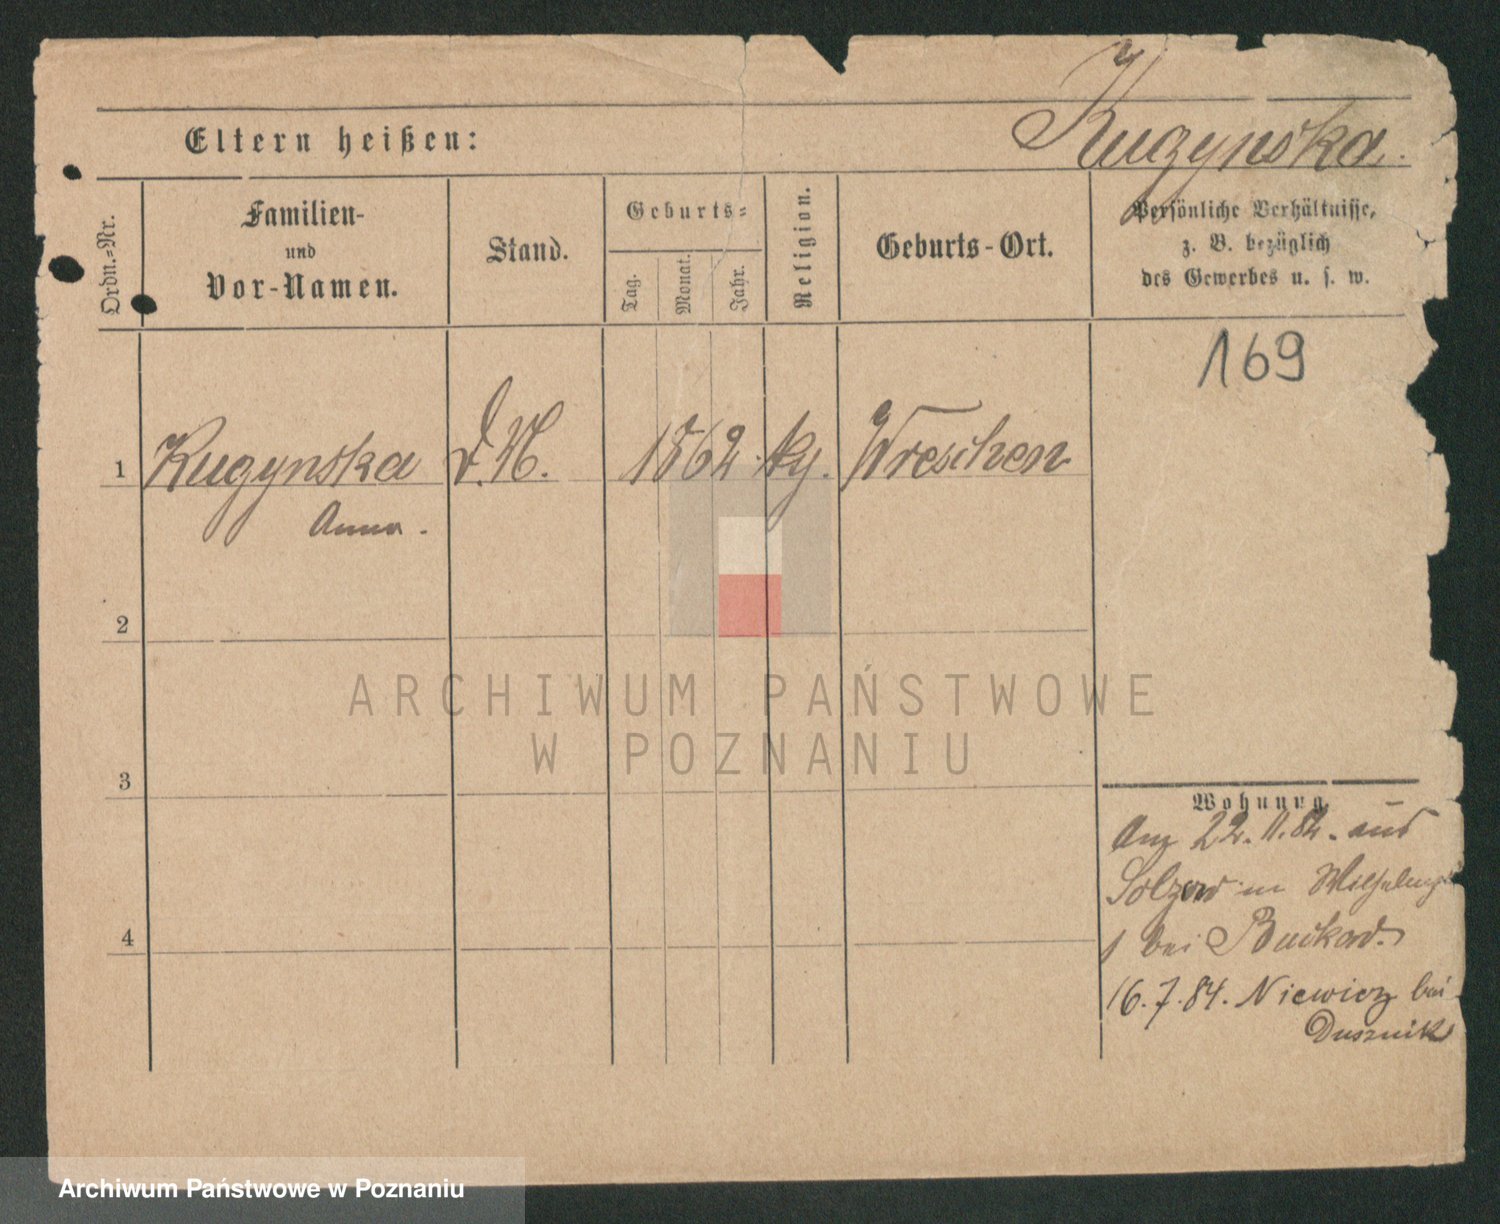 Kugynska.
Eltern heißen:
Ordn.-Nr.
Familien-
und
Vor-Namen.
Stand.
Geburts-
Tag.
Monat.
Jahr.
Religion.
Geburts-Ort.
Persönliche Verhältnisse,
z. B. bezüglich
des Gewerbes u. s. w.
169
1 Kugynska d. M. 1862. kg. Wreschen
Anna.
2
3
4
Wohnung
22. 11. 82. aus
in
1 bei Buckow.
16.7.84. Niewierz bei
Dusznik
ARCHIWUM PAŃSTWOWE
W POZNANIU
Archiwum Państwowe w Poznaniu